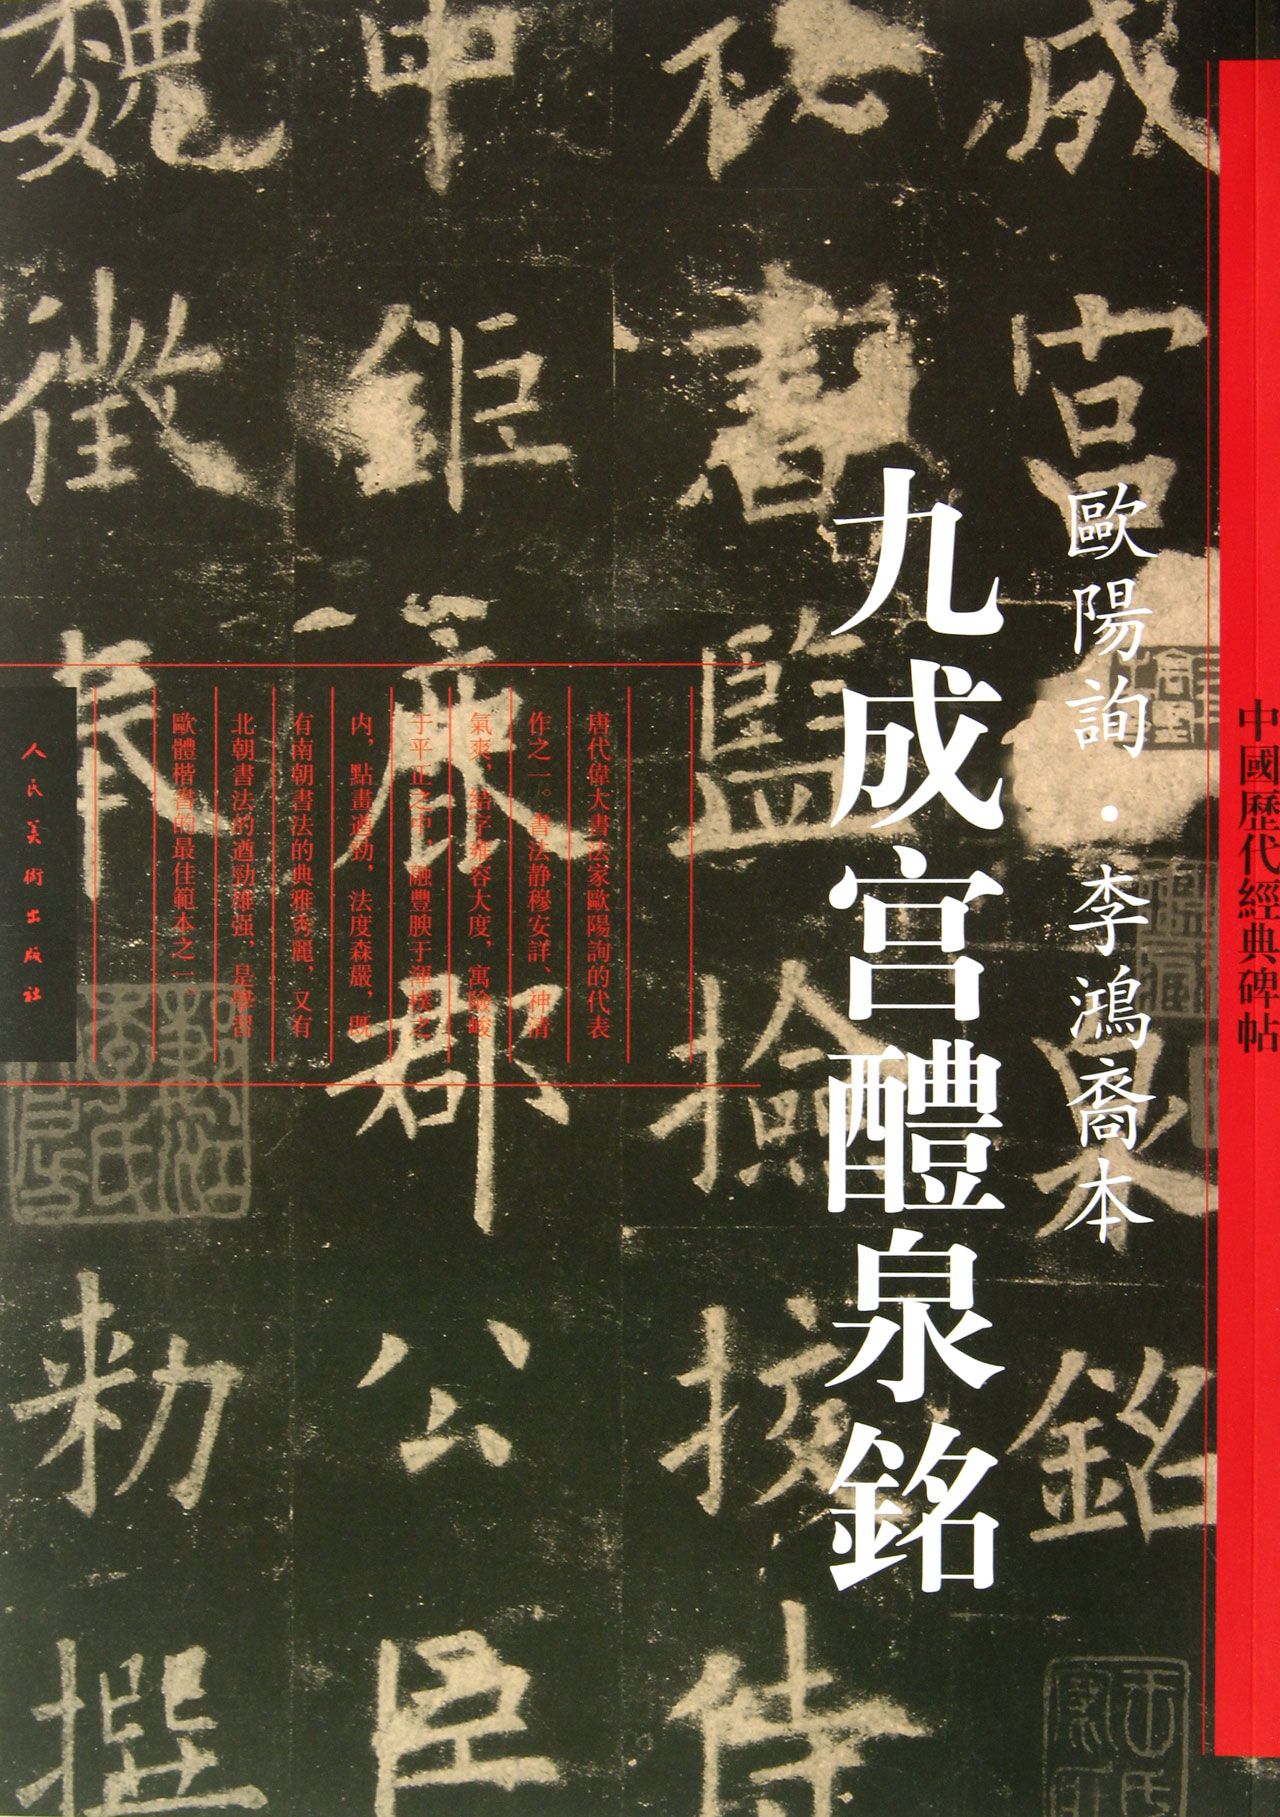 中國歷代經典碑帖
歐陽詢·李鴻裔本
九成宫醴泉銘
成宫泉銘
秘書監撿挍侍
中鉅鹿郡公臣
魏徵奉勅撰
唐代偉大書法家歐陽詢的代表
作之一。書法静穆安詳、神清
氣爽，結字雍容大度，寓險峻
于平正之中，融豐腴于渾樸之
内，點畫遒勁，法度森嚴，既
有南朝書法的典雅秀麗，又有
北朝書法的遒勁雄强，是學習
歐體楷書的最佳範本之一。
人民美術出版社